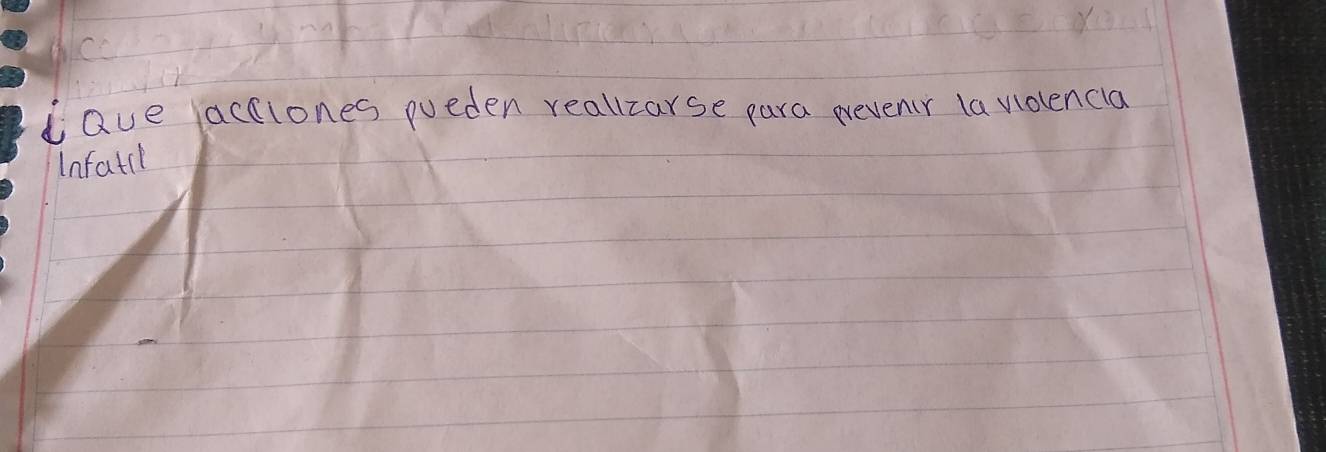 ¿Que acciones pueden realizarse para prevenir la violencia
Infatil